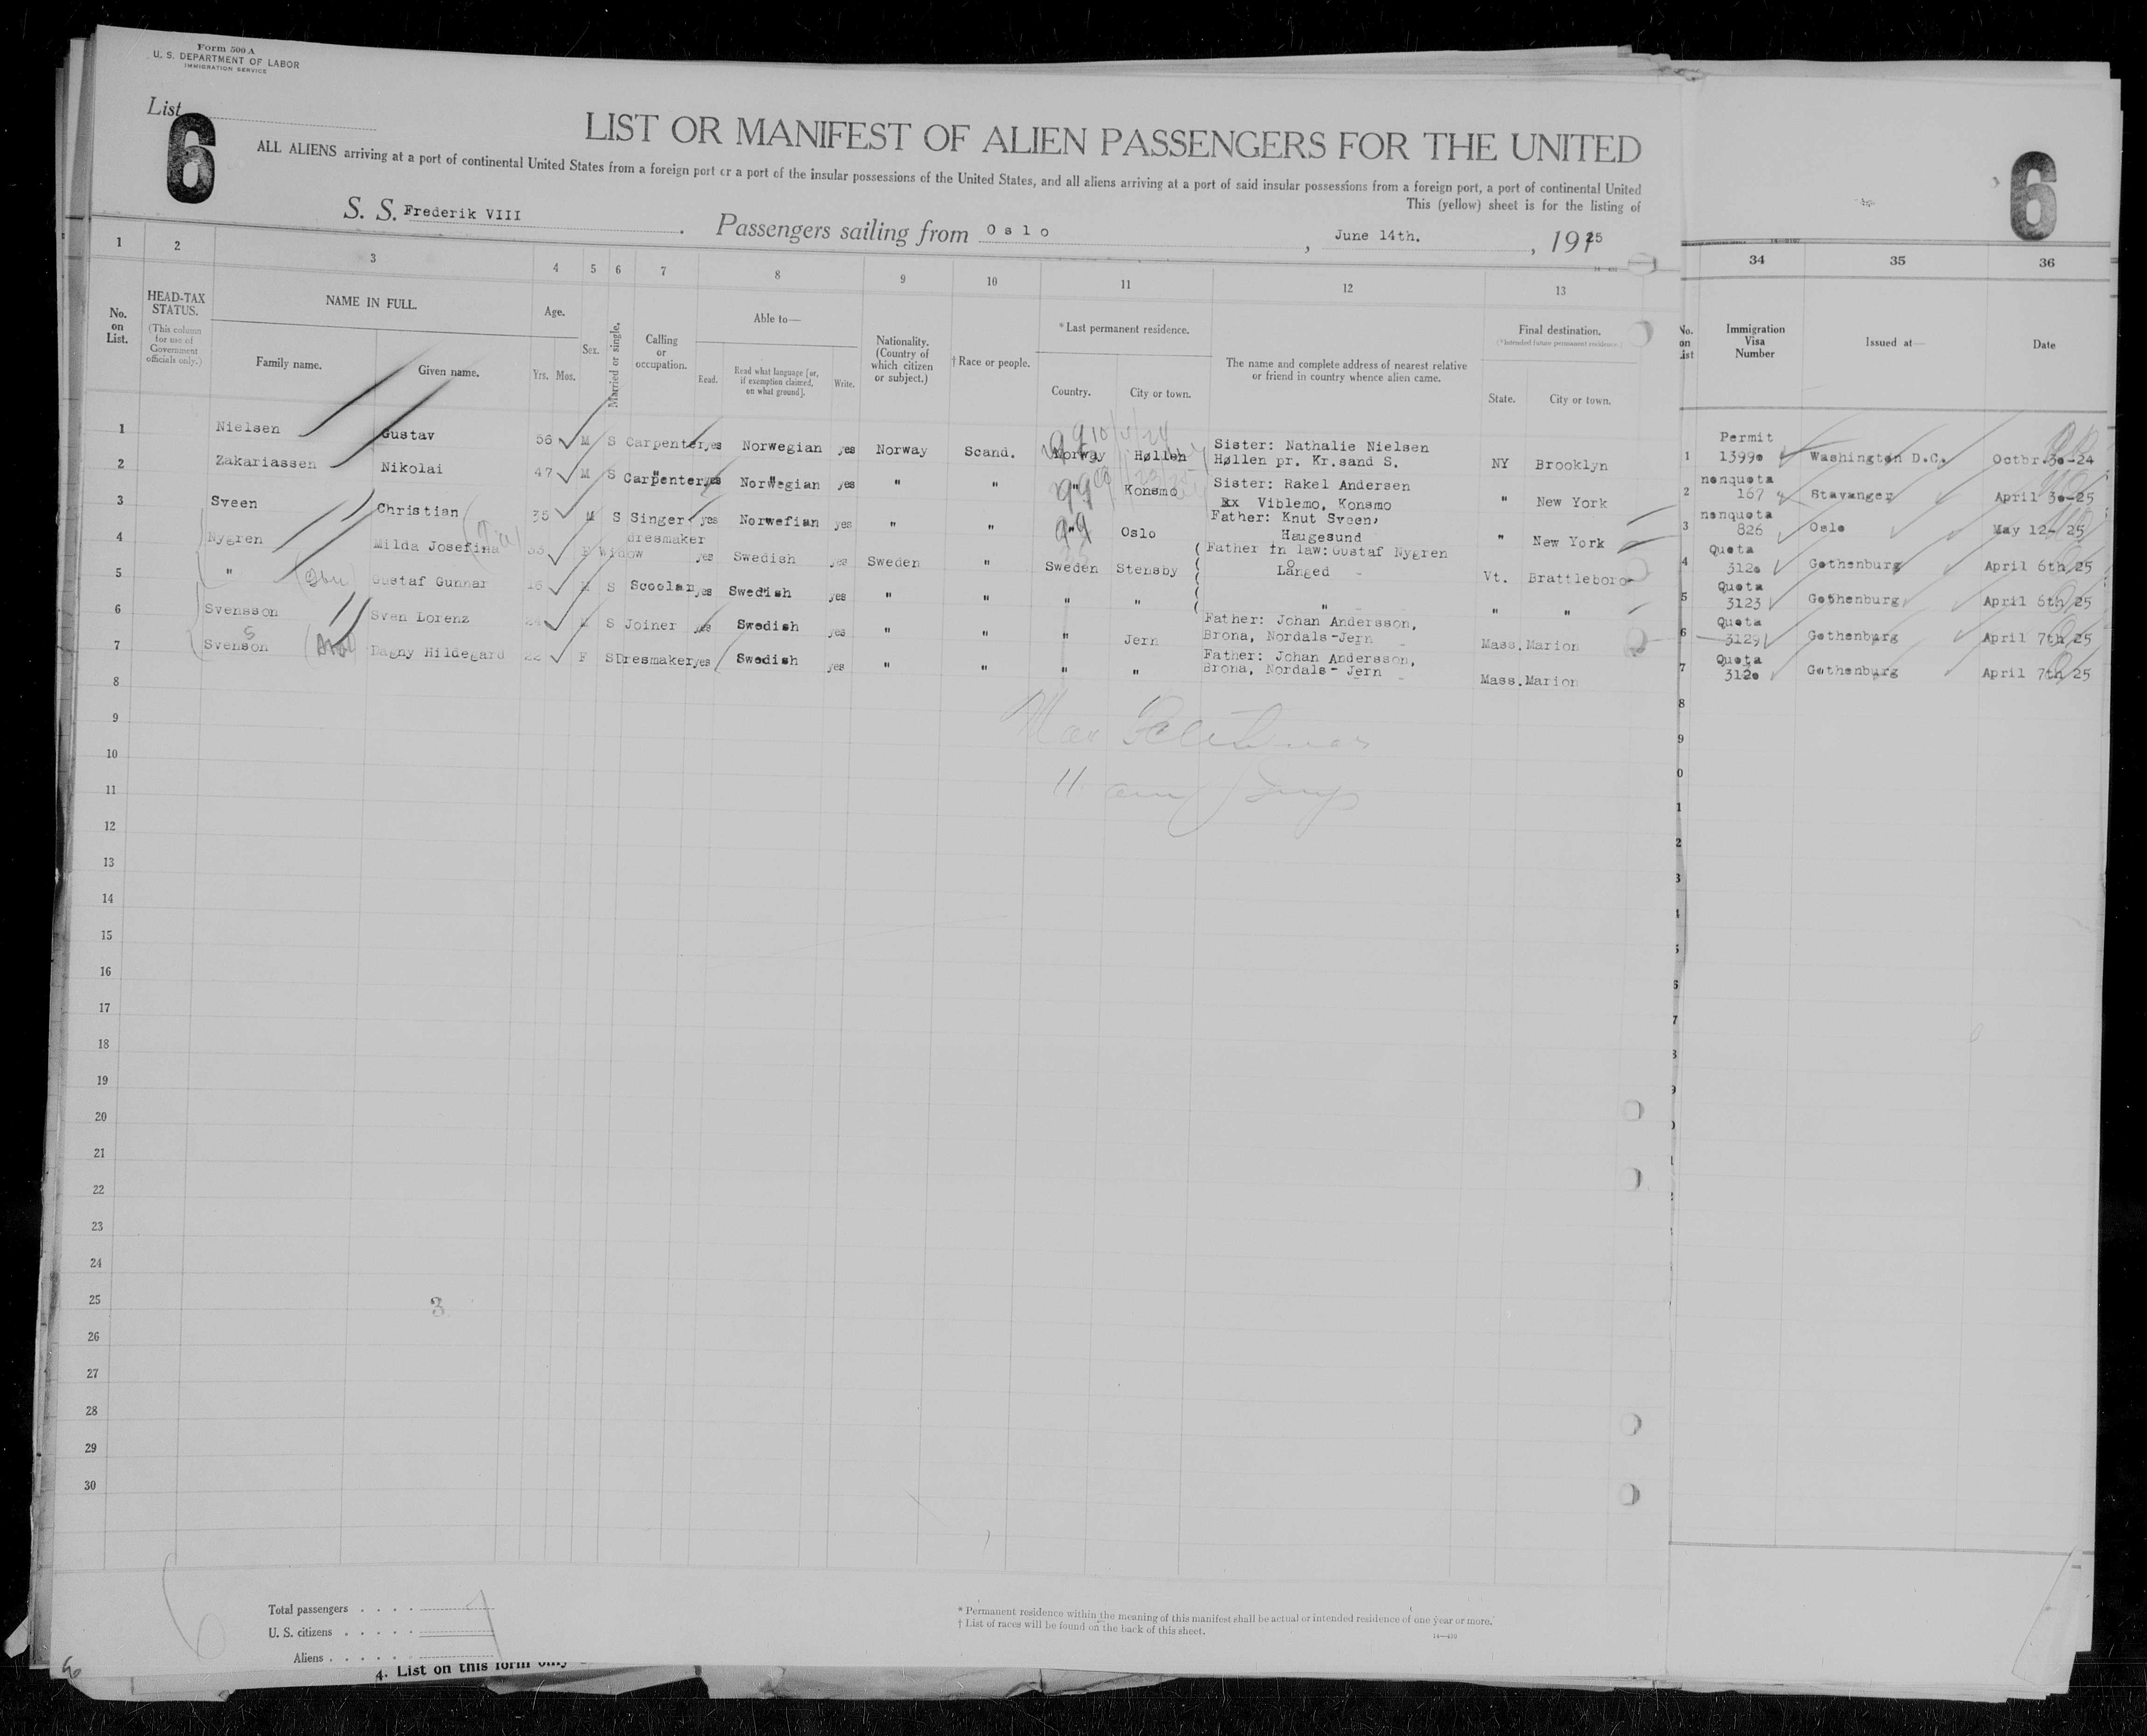 Form 500 A
U. S. DEPARTMENT OF LABOR
IMMIGRATION SERVICE
List
6
6
LIST OR MANIFEST OF ALIEN PASSENGERS FOR THE UNITED
ALL ALIENS arriving at a port of continental United States from a foreign port or a port of the insular possessions of the United States, and all aliens arriving at a port of said insular possessions from a foreign port, a port of continental United
This (yellow) sheet is for the listing of
S. S. Frederik VIII . Passengers sailing from Oslo , June 14th. , 1925
1 2 3 4 5 6 7 8 9 10 11 12 13 34 35 36
No. on List.
HEAD-TAX STATUS.
(This column for use of Government officials only.)
NAME IN FULL.
Family name. Given name.
Age.
Yrs. Mos.
Sex.
Married or single.
Calling or occupation.
Able to—
Read. Read what language [or, if exemption claimed, on what ground]. Write.
Nationality. (Country of which citizen or subject.)
† Race or people.
* Last permanent residence.
Country. City or town.
The name and complete address of nearest relative or friend in country whence alien came.
Final destination.
(* Intended future permanent residence.)
State. City or town.
No. on List
Immigration Visa Number
Issued at—
Date
1 Nielsen Gustav 56 M S Carpenter yes Norwegian yes Norway Scand. Norway Høllen Sister: Nathalie Nielsen Høllen pr. Kr.sand S. NY Brooklyn 1 Permit 13990 Washington D.C. Octbr.30-24
2 Zakariassen Nikolai 47 M S Carpenter yes Norwegian yes " " " Konsmo Sister: Rakel Andersen Viblemo, Konsmo " New York 2 nonquota 167 Stavanger April 30-25
3 Sveen Christian 35 M S Singer yes Norwefian yes " " " Oslo Father: Knut Sveen, Haugesund " New York 3 nonquota 826 Oslo May 12-25
4 Nygren Milda Josefina 33 F Widow dresmaker yes Swedish yes Sweden " Sweden Stensby Father in law: Gustaf Nygren Långed Vt. Brattleboro 4 Quota 3120 Gothenburg April 6th 25
5 " Gustaf Gunnar 16 M S Scoolar yes Swedish yes " " " " " " " 5 Quota 3123 Gothenburg April 6th 25
6 Svensson Sven Lorenz 24 M S Joiner yes Swedish yes " " " Jern Father: Johan Andersson, Brona, Nordals-Jern Mass. Marion 6 Quota 3129 Gothenburg April 7th 25
7 Svenson Dagny Hildegard 22 F S Dresmaker yes Swedish yes " " " " Father: Johan Andersson, Brona, Nordals-Jern Mass. Marion 7 Quota 3120 Gothenburg April 7th 25
8
9
10
11
12
13
14
15
16
17
18
19
20
21
22
23
24
25
3
26
27
28
29
30
Total passengers
U. S. citizens
Aliens
* Permanent residence within the meaning of this manifest shall be actual or intended residence of one year or more.
† List of races will be found on the back of this sheet.
14—430
4. List on this form only